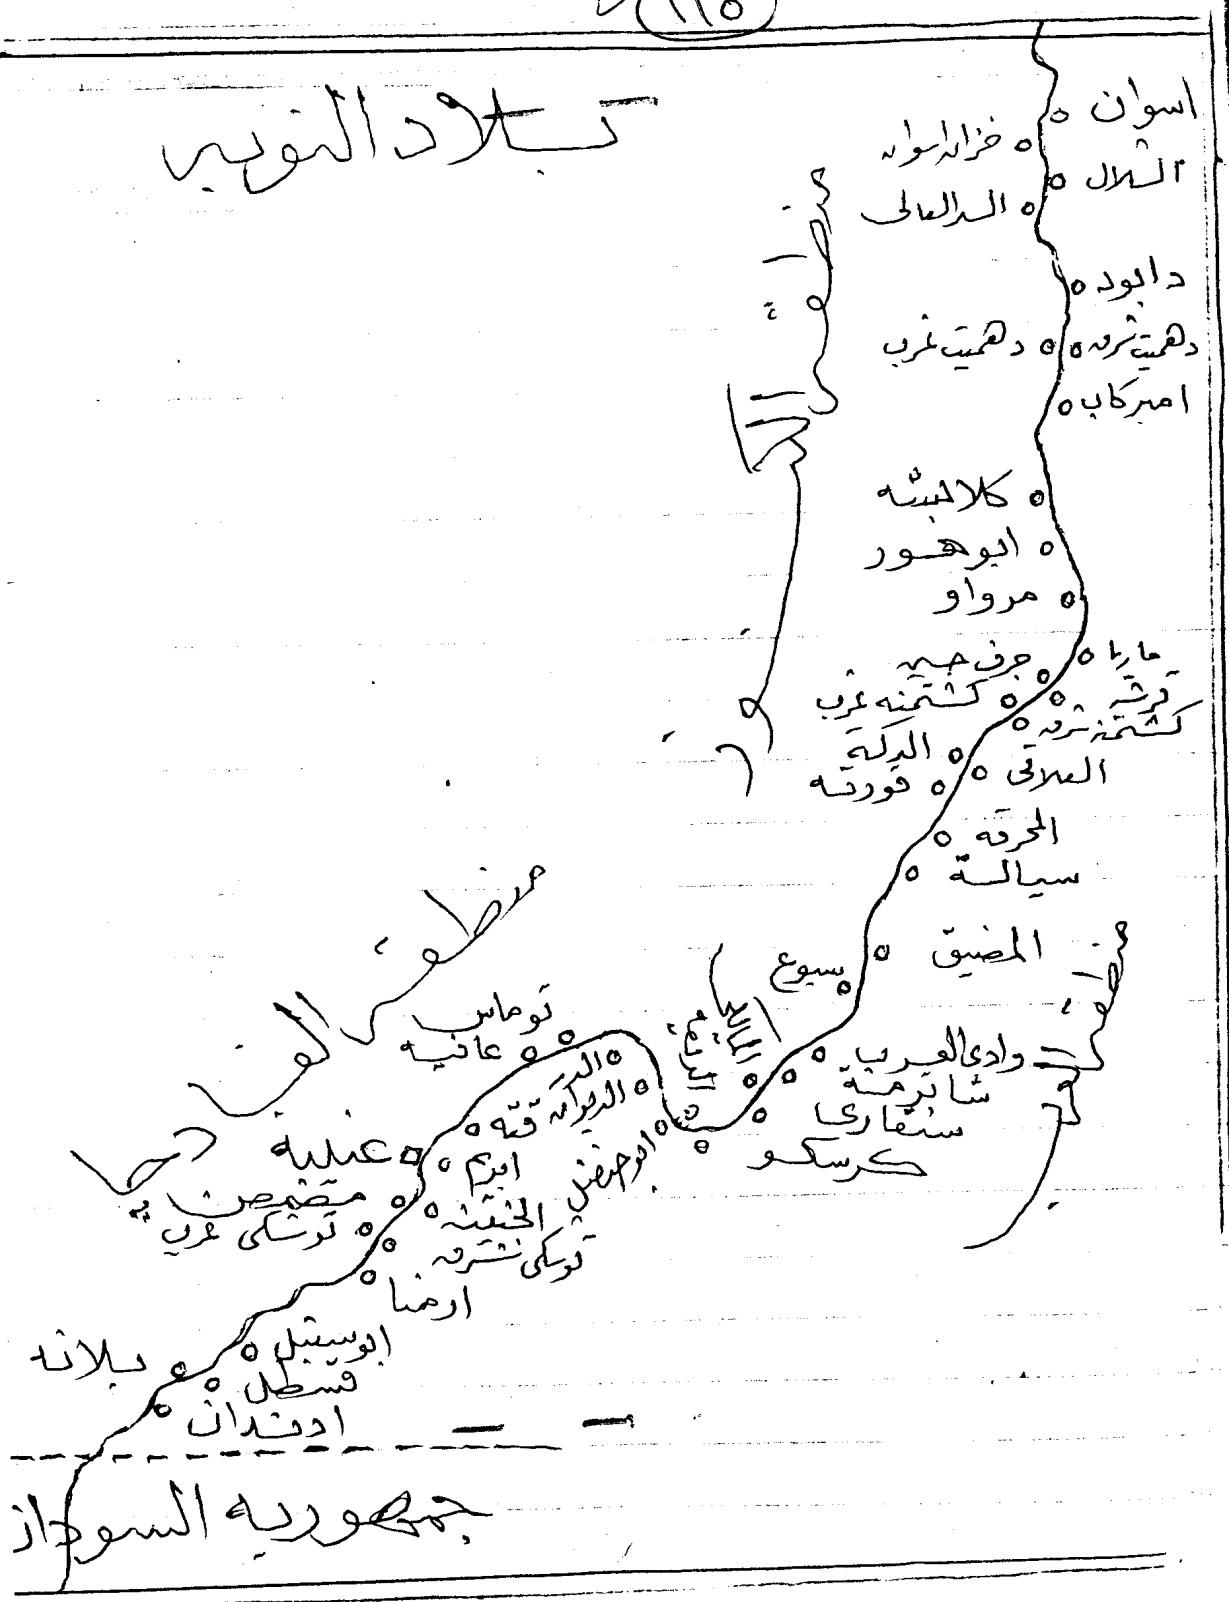 ١١٥
بلاد النوبه
اسوان
خزان اسوان
الشلال
السد العالى
دابود
دهميت شرق
دهميت غرب
امبركاب
منطقة الكنوز
كلابشه
ابو هور
مرواو
ماريا
جرف حسين
قرشه
كشتمنه غرب
كشتمنه شرق
الدكة
العلاقى
قورته
المحرقه
سيالة
المضيق
سبوع
منطقة العرب
وادى العرب
شاترمة
المالكى
سنقارى
كرسكو
ابو حنضل
الديوان
الدر
توماس
عافيه
منطقة الفديجا
قته
عنيبه
ابريم
مصمص
الجنينه
توشكى غرب
توشكى شرق
ارمنا
ابو سمبل
بلانه
قسطل
ادندان
جمهوريه السودان